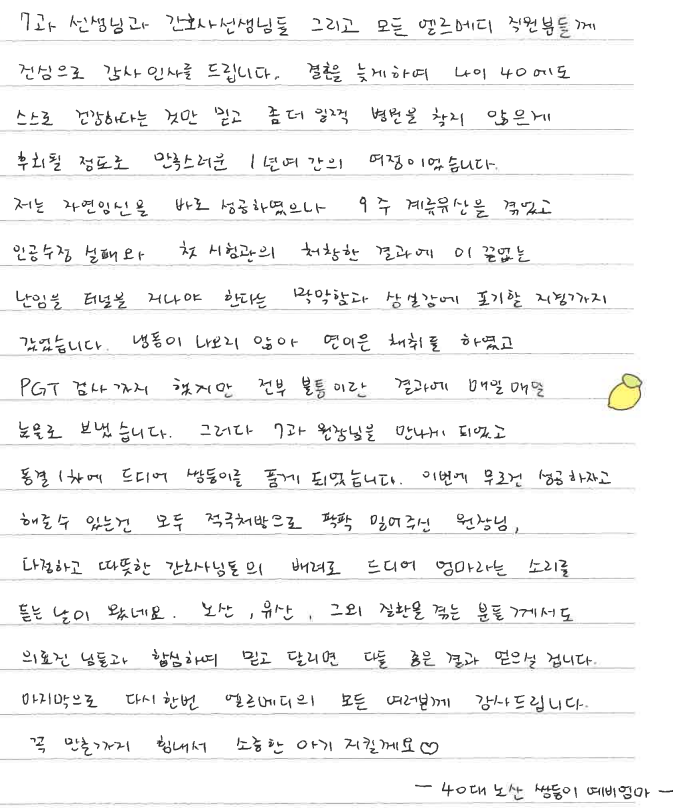 7과 선생님과 간호사선생님들 그리고 모든 엘르메디 직원분들께
진심으로 감사인사를 드립니다. 결혼을 늦게하여 나이 40에도
스스로 건강하다는 것만 믿고 좀더 일찍 병원을 찾지 않은게
후회될 정도로 만족스러운 1년여 간의 여정이었습니다.
저는 자연임신을 바로 성공하였으나 9주 계류유산을 겪었고
인공수정 실패와 첫 시험관의 처참한 결과에 이 끝없는
난임을 터널을 지나야 한다는 막막함과 상실감에 포기할 지경까지
갔었습니다. 냉동이 나오지 않아 연이은 채취를 하였고
PGT 검사까지 했지만 전부 불통이란 결과에 매일매일
눈물로 보냈습니다. 그러다 7과 원장님을 만나게 되었고
동결1차에 드디어 쌍둥이를 품게 되었습니다. 이번에 무조건 성공하자고
해줄수 있는건 모두 적극처방으로 팍팍 밀어주신 원장님,
다정하고 따뜻한 간호사님들의 배려로 드디어 엄마라는 소리를
듣는 날이 왔네요. 노산, 유산, 그외 질환을 겪는 분들께서도
의료진 님들과 합심하여 믿고 달리면 다들 좋은 결과 얻으실 겁니다.
마지막으로 다시한번 엘르메디의 모든 여러분께 감사드립니다.
꼭 만출까지 힘내서 소중한 아기 지킬게요♡
- 40대 노산 쌍둥이 예비엄마 -